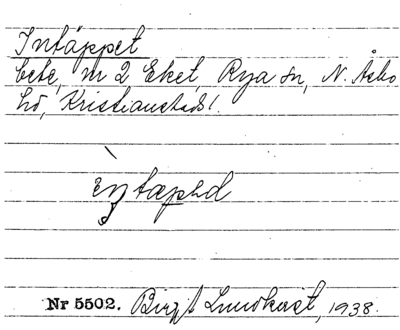 Intäppet
bete, nr 2 Eket, Rya sn, N. Åsbo
hd, Kristianstads l.
ìntæpəd
Nr 5502. Birgit Lundkvist, 1938.